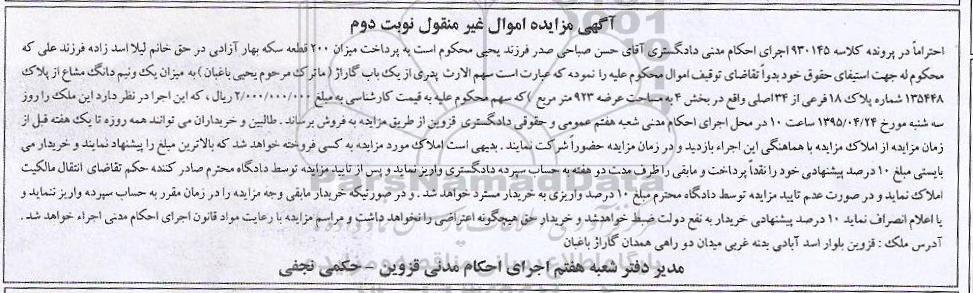 آگهی مزایده اموال غیر منقول نوبت دوم
احتراماً در پرونده کلاسه ۹۳۰۱۴۵ اجرای احکام مدنی دادگستری آقای حسن صباحی صدر فرزند یحیی محکوم است به پرداخت میزان ۲۰۰ قطعه سکه بهار آزادی در حق خانم لیلا اسد زاده فرزند علی که
محکوم له جهت استیفای حقوق خود بدواً تقاضای توقیف اموال محکوم علیه را نموده که عبارت است سهم الارث پدری از یک باب گاراژ ( ماترک مرحوم یحیی باغبان ) به میزان یک ونیم دانگ مشاع از پلاک
۱۳۵۴۴۸ شماره پلاک ۱۸ فرعی از ۳۴ اصلی واقع در بخش ۴ به مساحت عرصه ۹۲۳ متر مربع ) که سهم محکوم علیه به قیمت کارشناسی به مبلغ ۲/۰۰۰/۰۰۰/۰۰۰ ریال ، که این اجرا در نظر دارد این ملک را روز
سه شنبه مورخ ۱۳۹۵/۰۴/۲۴ ساعت ۱۰ در محل اجرای احکام مدنی شعبه هفتم عمومی و حقوقی دادگستری قزوین از طریق مزایده به فروش برساند . طالبین و خریداران می توانند همه روزه تا یک هفته قبل از
زمان مزایده از املاک مزایده با هماهنگی این اجراء بازدید و در زمان مزایده حضوراً شرکت نمایند . بدیهی است املاک مورد مزایده به کسی فروخته خواهد شد که بالاترین مبلغ را پیشنهاد نمایند و خریدار می
بایستی مبلغ ۱۰ درصد پیشنهادی خود را نقداً پرداخت و مابقی را ظرف مدت دو هفته به حساب سپرده دادگستری واریز نماید و پس از تایید مزایده توسط دادگاه محترم صادر کننده حکم تقاضای انتقال مالکیت
املاک نماید و در صورت عدم تایید مزایده توسط دادگاه محترم مبلغ ۱۰ درصد واریزی به خریدار مسترد خواهد شد . و در صورتیکه خریدار مابقی وجه مزایده را در زمان مقرر به حساب سپرده واریز ننماید و
یا اعلام انصراف نماید ۱۰ درصد پیشنهادی خریدار به نفع دولت ضبط خواهدشد و خریدار حق هیچگونه اعتراضی را نخواهد داشت و مراسم مزایده با رعایت مواد قانون اجرای احکام مدنی اجراء خواهد شد .
آدرس ملک : قزوین بلوار اسد آبادی بدنه غربی میدان دو راهی همدان گاراژ باغبان
مدیر دفتر شعبه هفتم اجرای احکام مدنی قزوین – حکمی نجفی